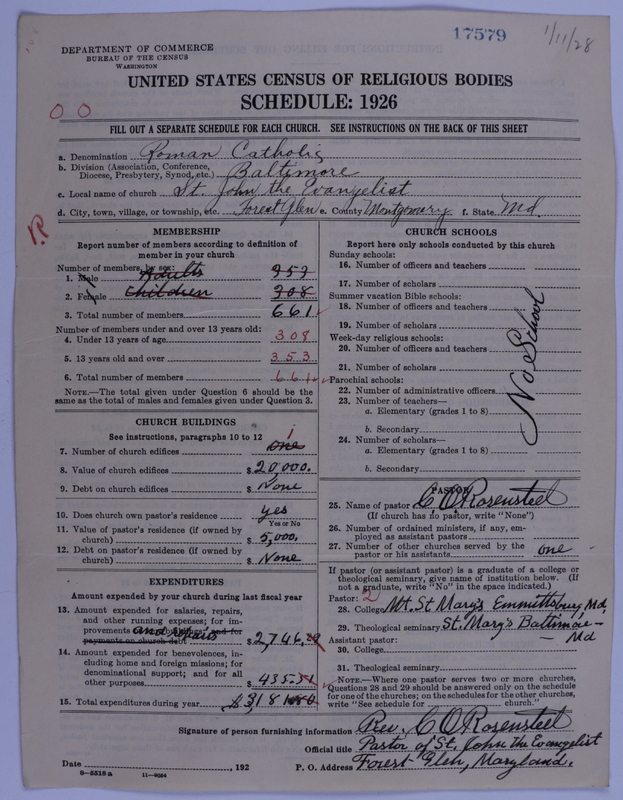 17579
1/11/28
DEPARTMENT OF COMMERCE
BUREAU OF THE CENSUS
WASHINGTON
UNITED STATES CENSUS OF RELIGIOUS BODIES
SCHEDULE: 1926
0 0
FILL OUT A SEPARATE SCHEDULE FOR EACH CHURCH. SEE INSTRUCTIONS ON THE BACK OF THIS SHEET
a. Denomination Roman Catholic
b. Division (Association, Conference, Diocese, Presbytery, Synod, etc.) Baltimore
c. Local name of church St. John the Evangelist
d. City, town, village, or township, etc. Forest Glen e. County Montgomery f. State Md.
MEMBERSHIP
Report number of members according to definition of
member in your church
Number of members, by sex:
1. Male Adults 353
2. Female Children 308
3. Total number of members 661
Number of members under and over 13 years old:
4. Under 13 years of age 308
5. 13 years old and over 353
6. Total number of members 661
NOTE.—The total given under Question 6 should be
same as the total of males and females given under Question 3.
CHURCH BUILDINGS
See instructions, paragraphs 10 to 12
7. Number of church edifices one 1
8. Value of church edifices $ 20,000.
9. Debt on church edifices $ None
10. Does church own pastor's residence yes
Yes or No
11. Value of pastor's residence (if owned by
church) $ 5,000.
12. Debt on pastor's residence (if owned by
church) $ None
EXPENDITURES
Amount expended by your church during last fiscal year
13. Amount expended for salaries, repairs,
and other running expenses; for im-
provements and repairs and for
payments on church debt $ 2,746.
14. Amount expended for benevolences, in-
cluding home and foreign missions; for
denominational support; and for all
other purposes $ 435.
15. Total expenditures during year $ 3,181
CHURCH SCHOOLS
Report here only schools conducted by this church
Sunday schools:
16. Number of officers and teachers
17. Number of scholars
Summer vacation Bible schools:
18. Number of officers and teachers
19. Number of scholars
Week-day religious schools:
20. Number of officers and teachers
21. Number of scholars
Parochial schools:
22. Number of administrative officers
23. Number of teachers—
a. Elementary (grades 1 to 8)
b. Secondary
24. Number of scholars—
a. Elementary (grades 1 to 8)
b. Secondary
No School
PASTOR
25. Name of pastor C O Rosensteel
(If church has no pastor, write "None")
26. Number of ordained ministers, if any, em-
ployed as assistant pastors
27. Number of other churches served by the
pastor or his assistants one
If pastor (or assistant pastor) is a graduate of a college or
theological seminary, give name of institution below. (If
not a graduate, write "No" in the space indicated.)
Pastor: 2
28. College Mt. St Mary's Emmittsburg Md.
29. Theological seminary St. Mary's Baltimore
— Md
Assistant pastor:
30. College
31. Theological seminary
NOTE.—Where one pastor serves two or more churches,
Questions 28 and 29 should be answered only on the schedule
for one of the churches; on the schedules for the other churches,
write "See schedule for church."
Signature of person furnishing information Rev. C O Rosensteel
Official title Pastor of St. John the Evangelist
Date , 192 P. O. Address Forest Glen, Maryland.
8—5518 a 11—9034